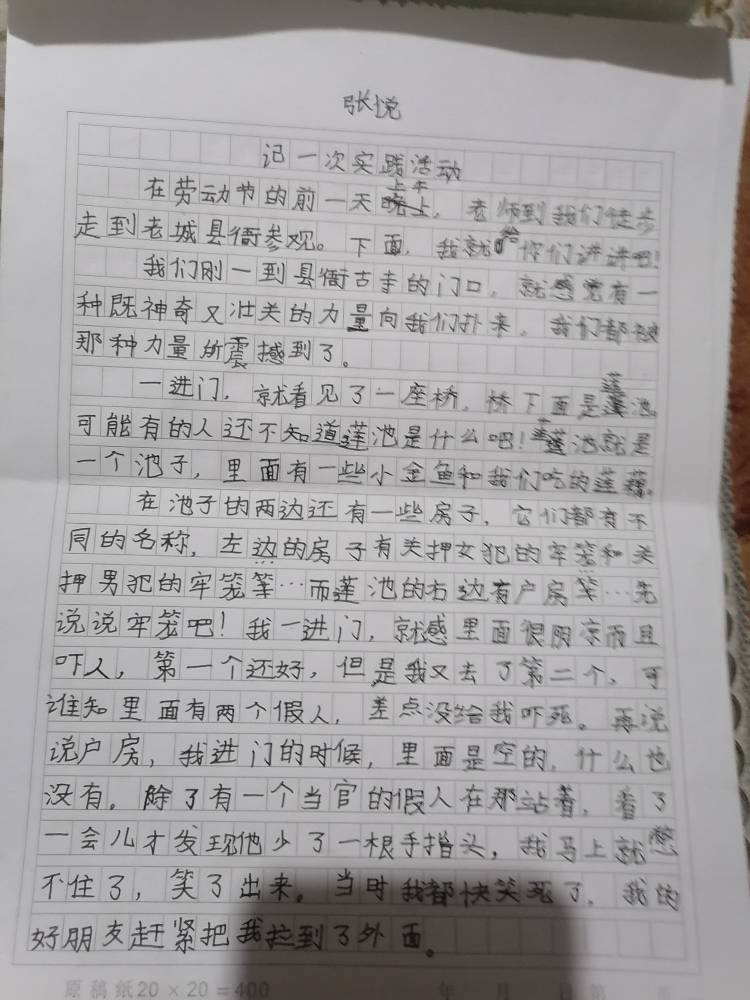 张悦
记一次实践活动
在劳动节的前一天上午，老师到我们徒步
走到老城县衙参观。下面，我就给你们讲讲吧！
我们刚一到县衙古寺的门口，就感觉有一
种既神奇又壮关的力量向我们扑来，我们都被
那种力量所震撼到了。
一进门，就看见了一座桥，桥下面是莲池。
可能有的人还不知道莲池是什么吧！莲池就是
一个池子，里面有一些小金鱼和我们吃的莲藕。
在池子的两边还有一些房子，它们都有不
同的名称，左边的房子有关押女犯的牢笼和关
押男犯的牢笼等…而莲池的右边有户房等…先
说说牢笼吧！我一进门，就感里面很阴凉而且
吓人，第一个还好，但是我又去了第二个，可
谁知里面有两个假人，差点没给我吓死。再说
说户房，我进门的时候，里面是空的，什么也
没有。除了有一个当官的假人在那站着，看了
一会儿才发现他少了一根手指头，我马上就憋
不住了，笑了出来。当时我都快笑死了，我的
好朋友赶紧把我拉到了外面。
原稿纸20×20=400
年 月 日 第